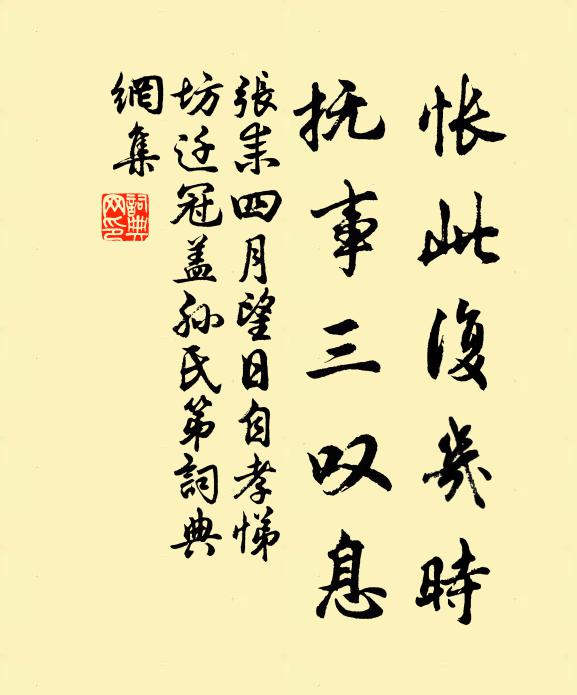 怅此復幾時
抚事三叹息
張耒四月望日自孝悌
坊迁冠盖孙氏第詞典
網集
詞典网印